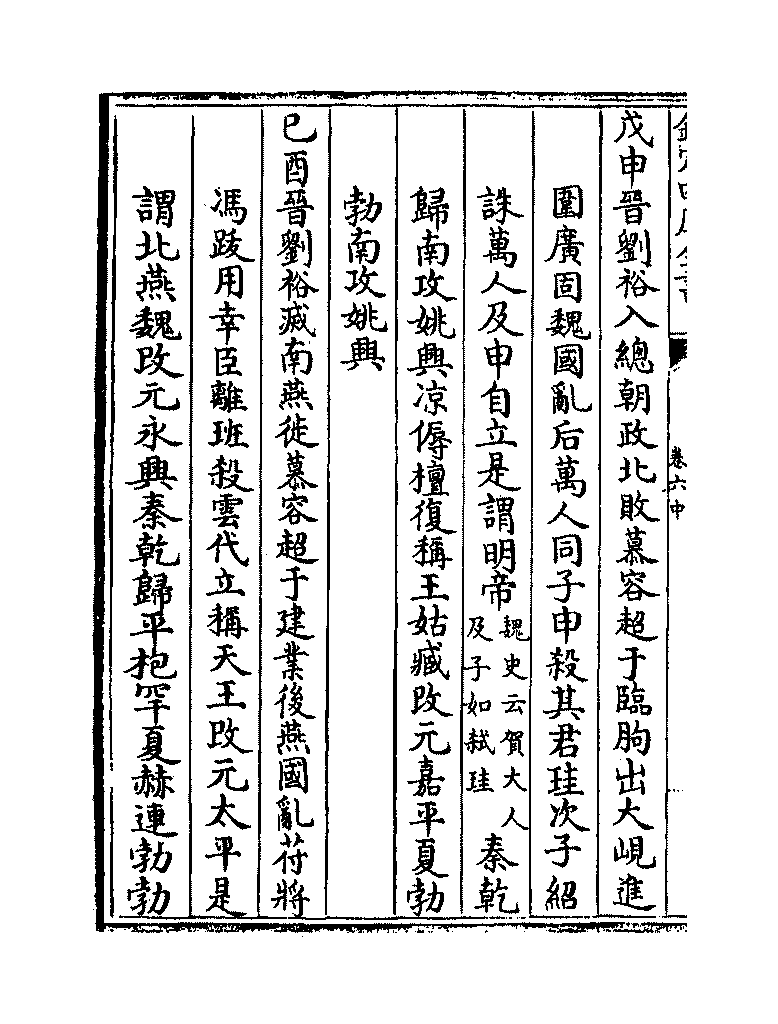 欽定四庫全書
卷六中
戊申晉劉裕入總朝政北敗慕容超于臨朐出大峴進
圍廣固魏國亂后萬人同子申殺其君珪次子紹
誅萬人及申自立是謂明帝魏史云賀大人及子如弒珪秦乾
歸南攻姚興凉傉檀復稱王姑臧改元嘉平夏勃
勃南攻姚興
巳酉晉劉裕滅南燕徙慕容超于建業後燕國亂苻將
馮跋用幸臣離班殺雲代立稱天王改元太平是
謂北燕魏改元永興秦乾歸平抱罕夏赫連勃勃